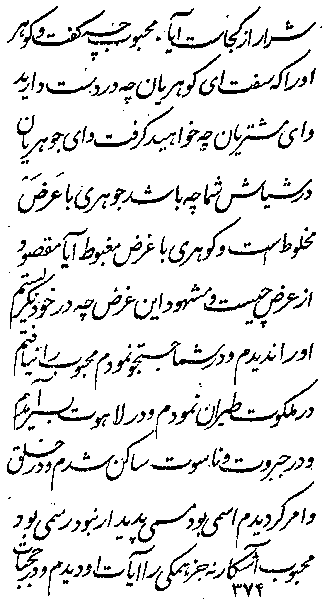 شرار از کجاست آیا، محبوب چه گفت و گوهر
اورا که سفت ای گوهریان چه در دست دارید
و ای مشتریان چه خواهید گرفت و ای جوهریان
در شناسش شما چه باشد جوهری با عَرَض
مخلوط است و گوهری با غرض مغبوط آیا مقصود
از عرض چیست و مشهود این غرض چه در خود نگریستم
اورا ندیدم و در شما جستجو نمودم محبوب را نیافتم
در ملکوت طیران نمودم و در لاهوت بسیر آمدم
و در جبروت و ناسوت ساکن شدم و در خلق
و امر گردیدم اسمی بود مسمی پدیدار نبود رسمی بود
محبوب آشکار نه جز همگی را آیات او دیدم و در حجبات
۳۷۴